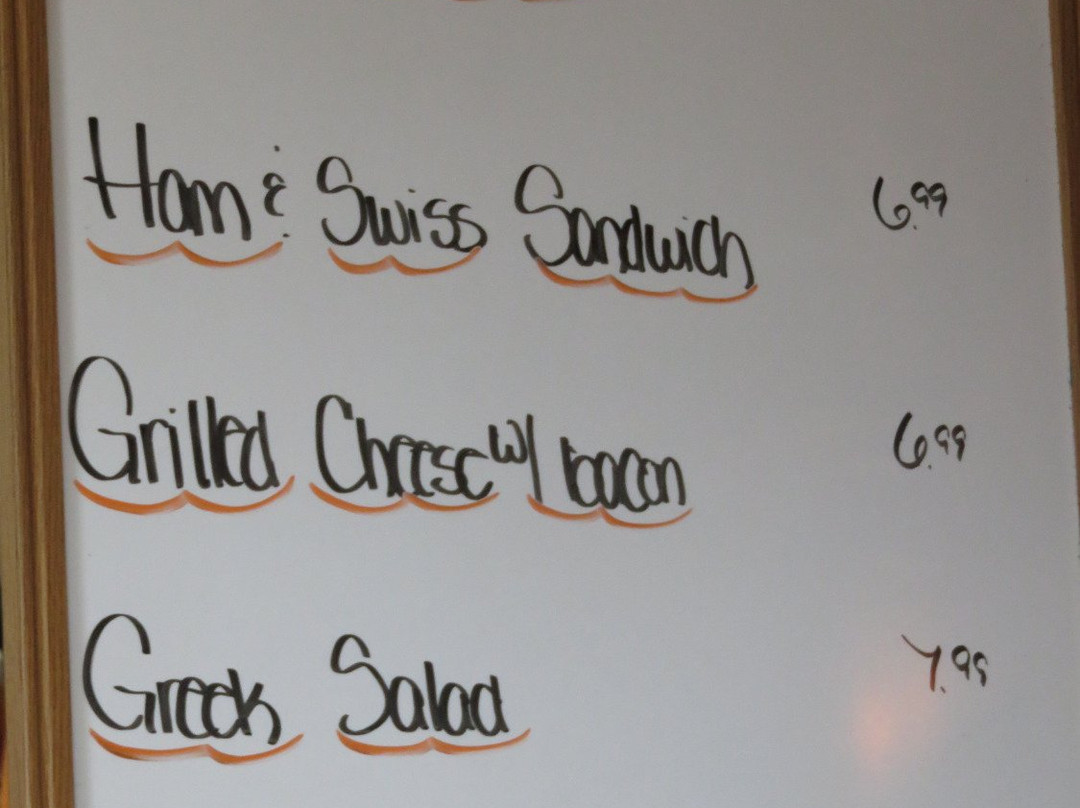 Ham & Swiss Sandwich 6.99
Grilled Cheese w/ bacon 6.99
Greek Salad 7.99